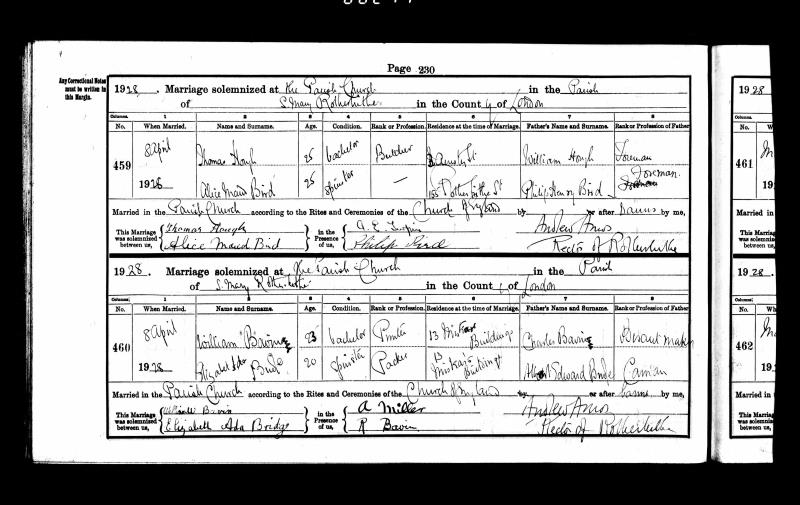 Page 230
Any Correctional Notes
must be written in
this Margin.
1928. Marriage solemnized at the Parish Church in the Parish
of S. Mary Rotherhithe in the County of London
Columns. 1 2 3 4 5 6 7 8
No. When Married. Name and Surname. Age. Condition. Rank or Profession. Residence at the time of Marriage. Father's Name and Surname. Rank or Profession of Father
459 8 April Thomas Hough 25 bachelor Butcher St William Hough Foreman
1928 Alice Maud Bird 25 spinster — 155 Rotherhithe St Philip Henry Bird Foreman
Married in the Parish Church according to the Rites and Ceremonies of the Church of England by or after banns by me,
This Marriage was solemnized between us, Thomas Hough in the Presence of us, Andrew Amos
Alice Maud Bird Philip Bird Rector of Rotherhithe
1928. Marriage solemnized at the Parish Church in the Parish
of S. Mary Rotherhithe in the County of London
Columns. 1 2 3 4 5 6 7 8
No. When Married. Name and Surname. Age. Condition. Rank or Profession. Residence at the time of Marriage. Father's Name and Surname. Rank or Profession of Father
460 8 April William 23 bachelor 13 Buildings Charles
1928 Elizabeth Ada 20 spinster Packer Buildings Edward Carman
Married in the Parish Church according to the Rites and Ceremonies of the Church of England by or after banns by me,
This Marriage was solemnized between us, William Bavin in the Presence of us, A Miller Andrew Amos
Elizabeth Ada Bridge R Bavin Rector of Rotherhithe
1928
Columns.
No.
461
19
Married in
This Marriage
was solemnized
between us,
1928.
Columns.
No.
462
19
Married in
This Marriage
was solemnized
between us,